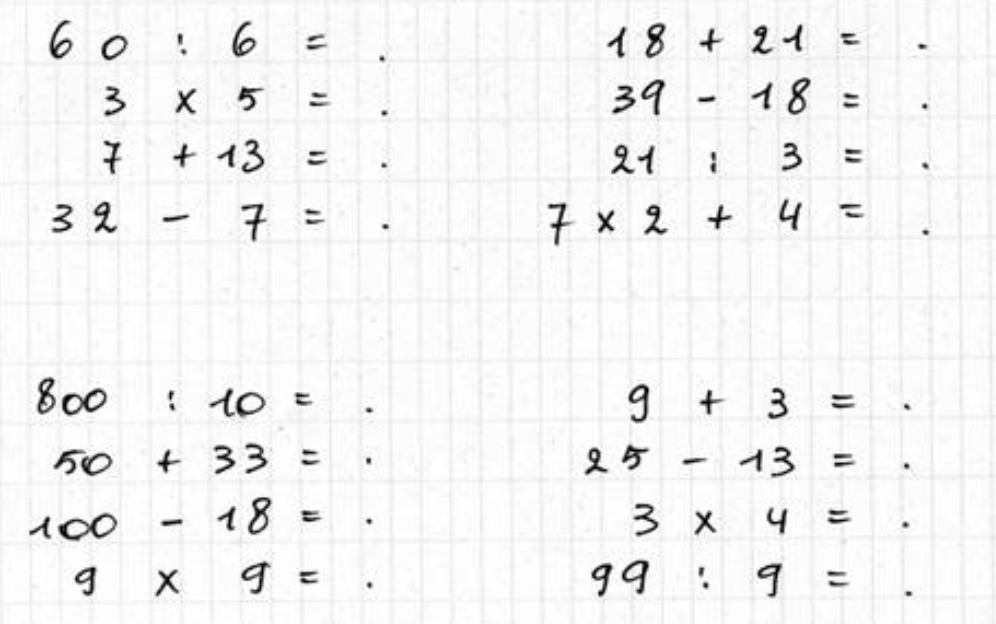 60 : 6 = .
3 x 5 = .
7 + 13 = .
32 - 7 = .
18 + 21 = .
39 - 18 = .
21 : 3 = .
7 x 2 + 4 = .
800 : 10 = .
50 + 33 = .
100 - 18 = .
9 x 9 = .
9 + 3 = .
25 - 13 = .
3 x 4 = .
99 : 9 = .